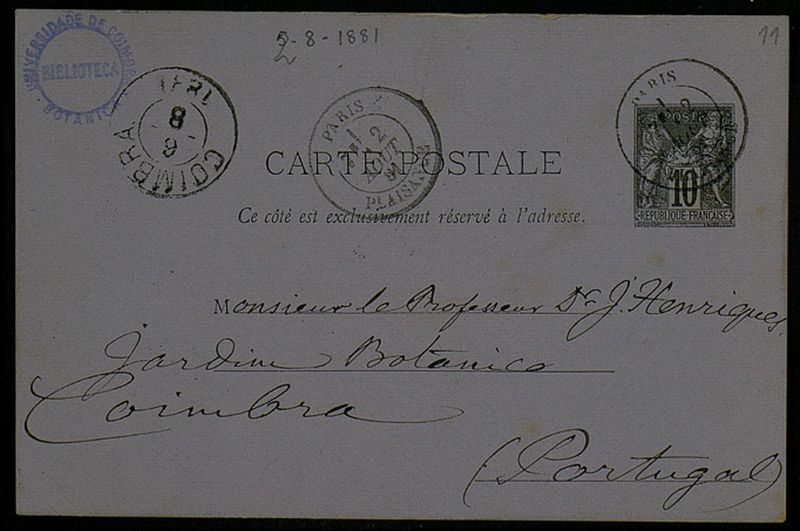 2-8-1881
11
UNIVERSIDADE DE COIMBRA
BIBLIOTECA
BOTANICA
1881
8
9
COIMBRA
PARIS
1
2
AOUT
81
PLAISANCE
PARIS
POSTE
CARTE POSTALE
10
REPUBLIQUE FRANÇAISE
Ce côté est exclusivement réservé à l'adresse.
Monsieur le Professeur Dr J. Henriques,
Jardim Botanico
Coimbra
(Portugal)